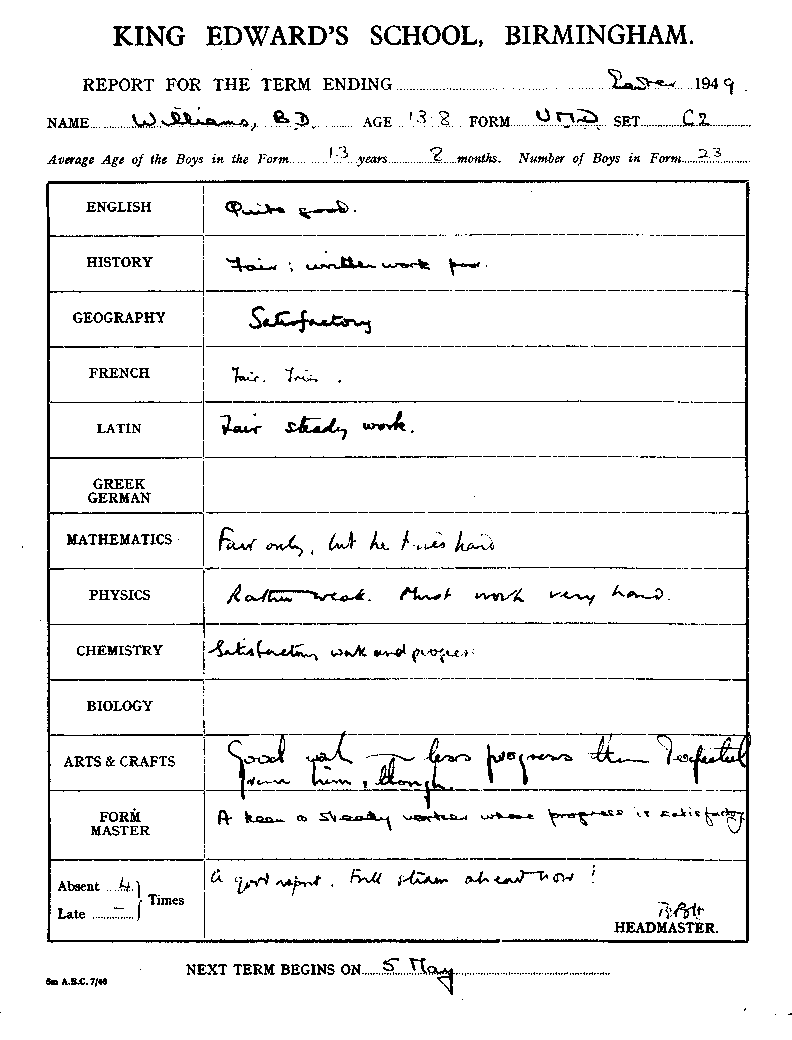 KING EDWARD'S SCHOOL, BIRMINGHAM.
REPORT FOR THE TERM ENDING Easter 1949.
NAME Williams, B D. AGE 13·8 FORM UMD SET C2
Average Age of the Boys in the Form 13 years 8 months. Number of Boys in Form 23
ENGLISH Quite good.
HISTORY Fair; written work poor.
GEOGRAPHY Satisfactory
FRENCH Fair. Tries.
LATIN Fair steady work.
GREEK
GERMAN
MATHEMATICS Fair only, but he tries hard
PHYSICS Rather weak. Must work very hard.
CHEMISTRY Satisfactory work and progress
BIOLOGY
ARTS & CRAFTS Good work — less progress than I expected
from him, though.
FORM MASTER A keen & steady worker whose progress is satisfactory
Absent 4 Times
Late —
A good report. Full steam ahead now!
HEADMASTER.
NEXT TERM BEGINS ON 5 May
5m A.B.C. 7/48